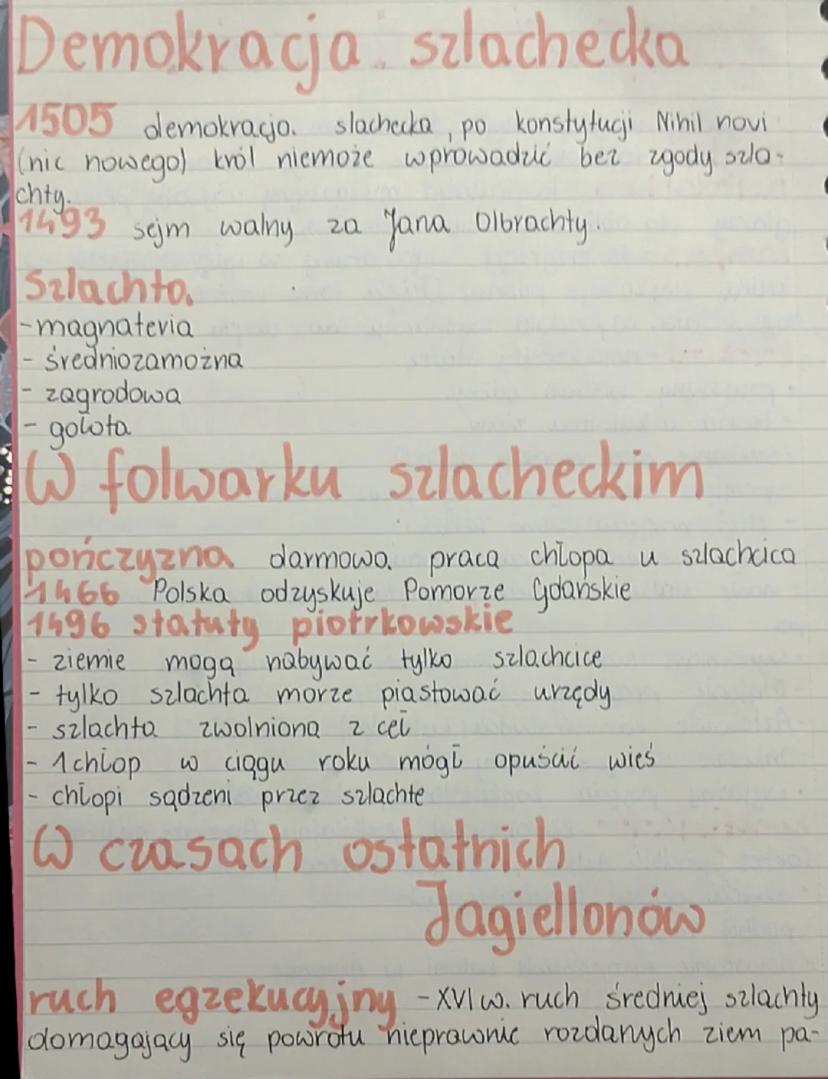 Demokracja szlachecka
1505 demokracja slachecka, po konstytucji Nihil novi
(nic nowego) król niemoże wprowadzić bez zgody szla-
chty.
1493 sejm walny za Jana Olbrachty.
Szlachta
- magnateria
- średniozamożna
- zagrodowa
- gołota
W folwarku szlacheckim
pończyzna darmowa praca chłopa u szlachcica
1466 Polska odzyskuje Pomorze Gdańskie
1496 statuty piotrkowskie
- ziemie mogą nabywać tylko szlachcice
- tylko szlachta morze piastować urzędy
- szlachta zwolniona z ceł
- 1 chłop w ciągu roku mógł opuścić wieś
- chłopi sądzeni przez szlachte
W czasach ostatnich
Jagiellonów
ruch egzekucyjny - XVI w. ruch średniej szlachty
domagający się powrotu nieprawnie rozdanych ziem pa-